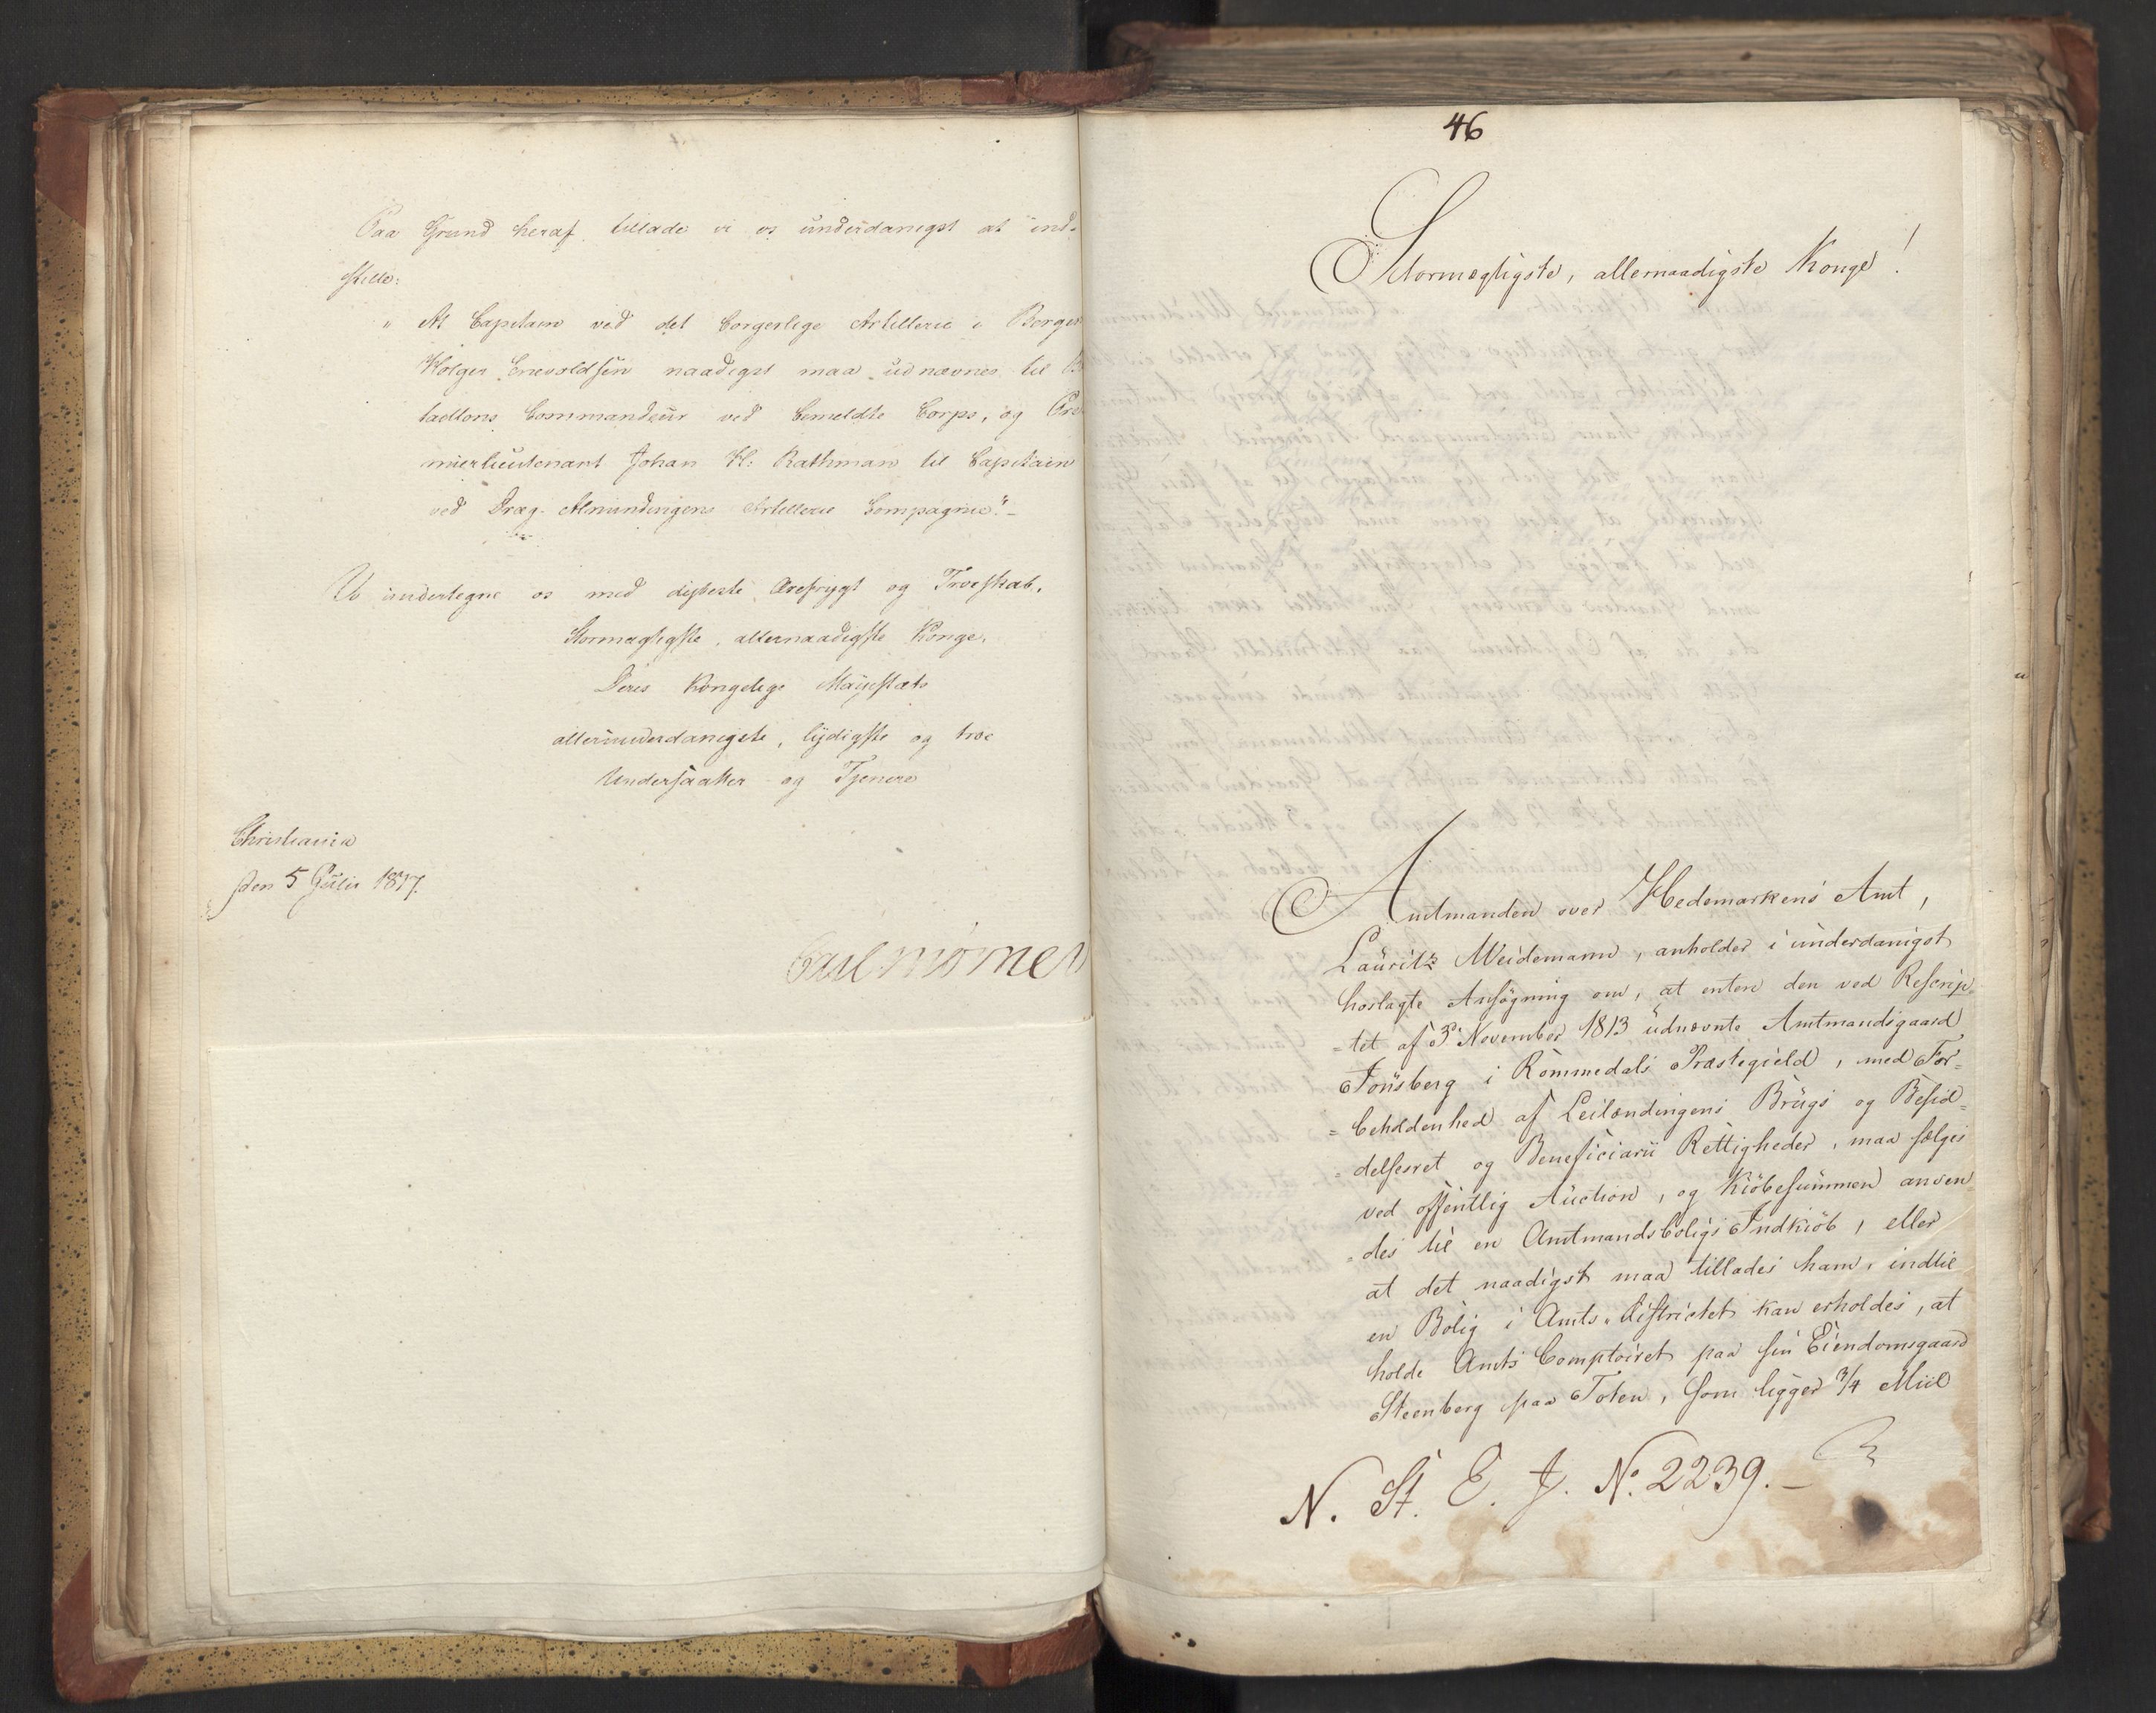 Paa Grund heraf tillade vi os underdanigst at ind-
stille:
" At Capitain ved det borgerlige Artillerie i Bergen
Holger Enevoldsen naadigst maa udnævnes til B
taillons Commandeur ved bemeldte Corps, og Pre
mierlieutenant Johan H: Rathman til Capitain
ved Dræg. Almindingens Artillerie Compagnie." -
Vi undertegne os med dybeste Ærefrygt og Troeskab,
Stormægtigste, allernaadigste Konge,
Deres Kongelige Majestæts
allerunderdanigste, lydigste og troe
Undersaatter og Tjenere
Christiania
den 5 Julii 1817.
Carl Mörner
46
Stormægtigste, allernaadigste Konge!
Amtmanden over Hedemarkens Amt,
Lauritz Weidemann, anholder i underdanigst
hoslagte Ansøgning om, at enten den ved Rescrip-
=tet af 3 November 1813 udnævnte Amtmandsgaard
Tønsberg i Rommedals Præstegield, med For=
=beholdenhed af Leilændingens Brugs og Besid=
=delsesret og Beneficiarii Rettigheder, maa sælges
ved offentlig Auction, og Kiöbesummen anven
=des til en Amtmandsboligs Indkiöb, eller
at det naadigst maa tillades ham, indtil
en Bolig i Amts-Districtet kan erholdes, at
holde Amts Comptoiret paa sin Eiendomsgaard
Steenberg paa Toten, som ligger 3/4 Miil
N. St. E. J. No. 2239. -